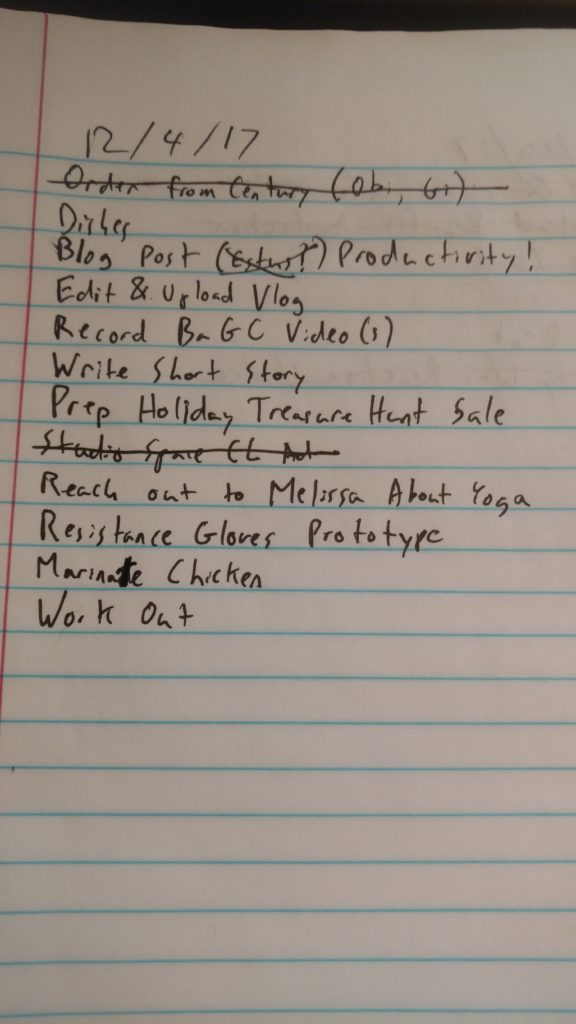 12/4/17
Order from Century (Obi, Gi)
Dishes
Blog Post (Estus?) Productivity!
Edit & Upload Vlog
Record BaGC Video(s)
Write Short Story
Prep Holiday Treasure Hunt Sale
Studio Space CL Ad
Reach out to Melissa About Yoga
Resistance Gloves Prototype
Marinate Chicken
Work Out